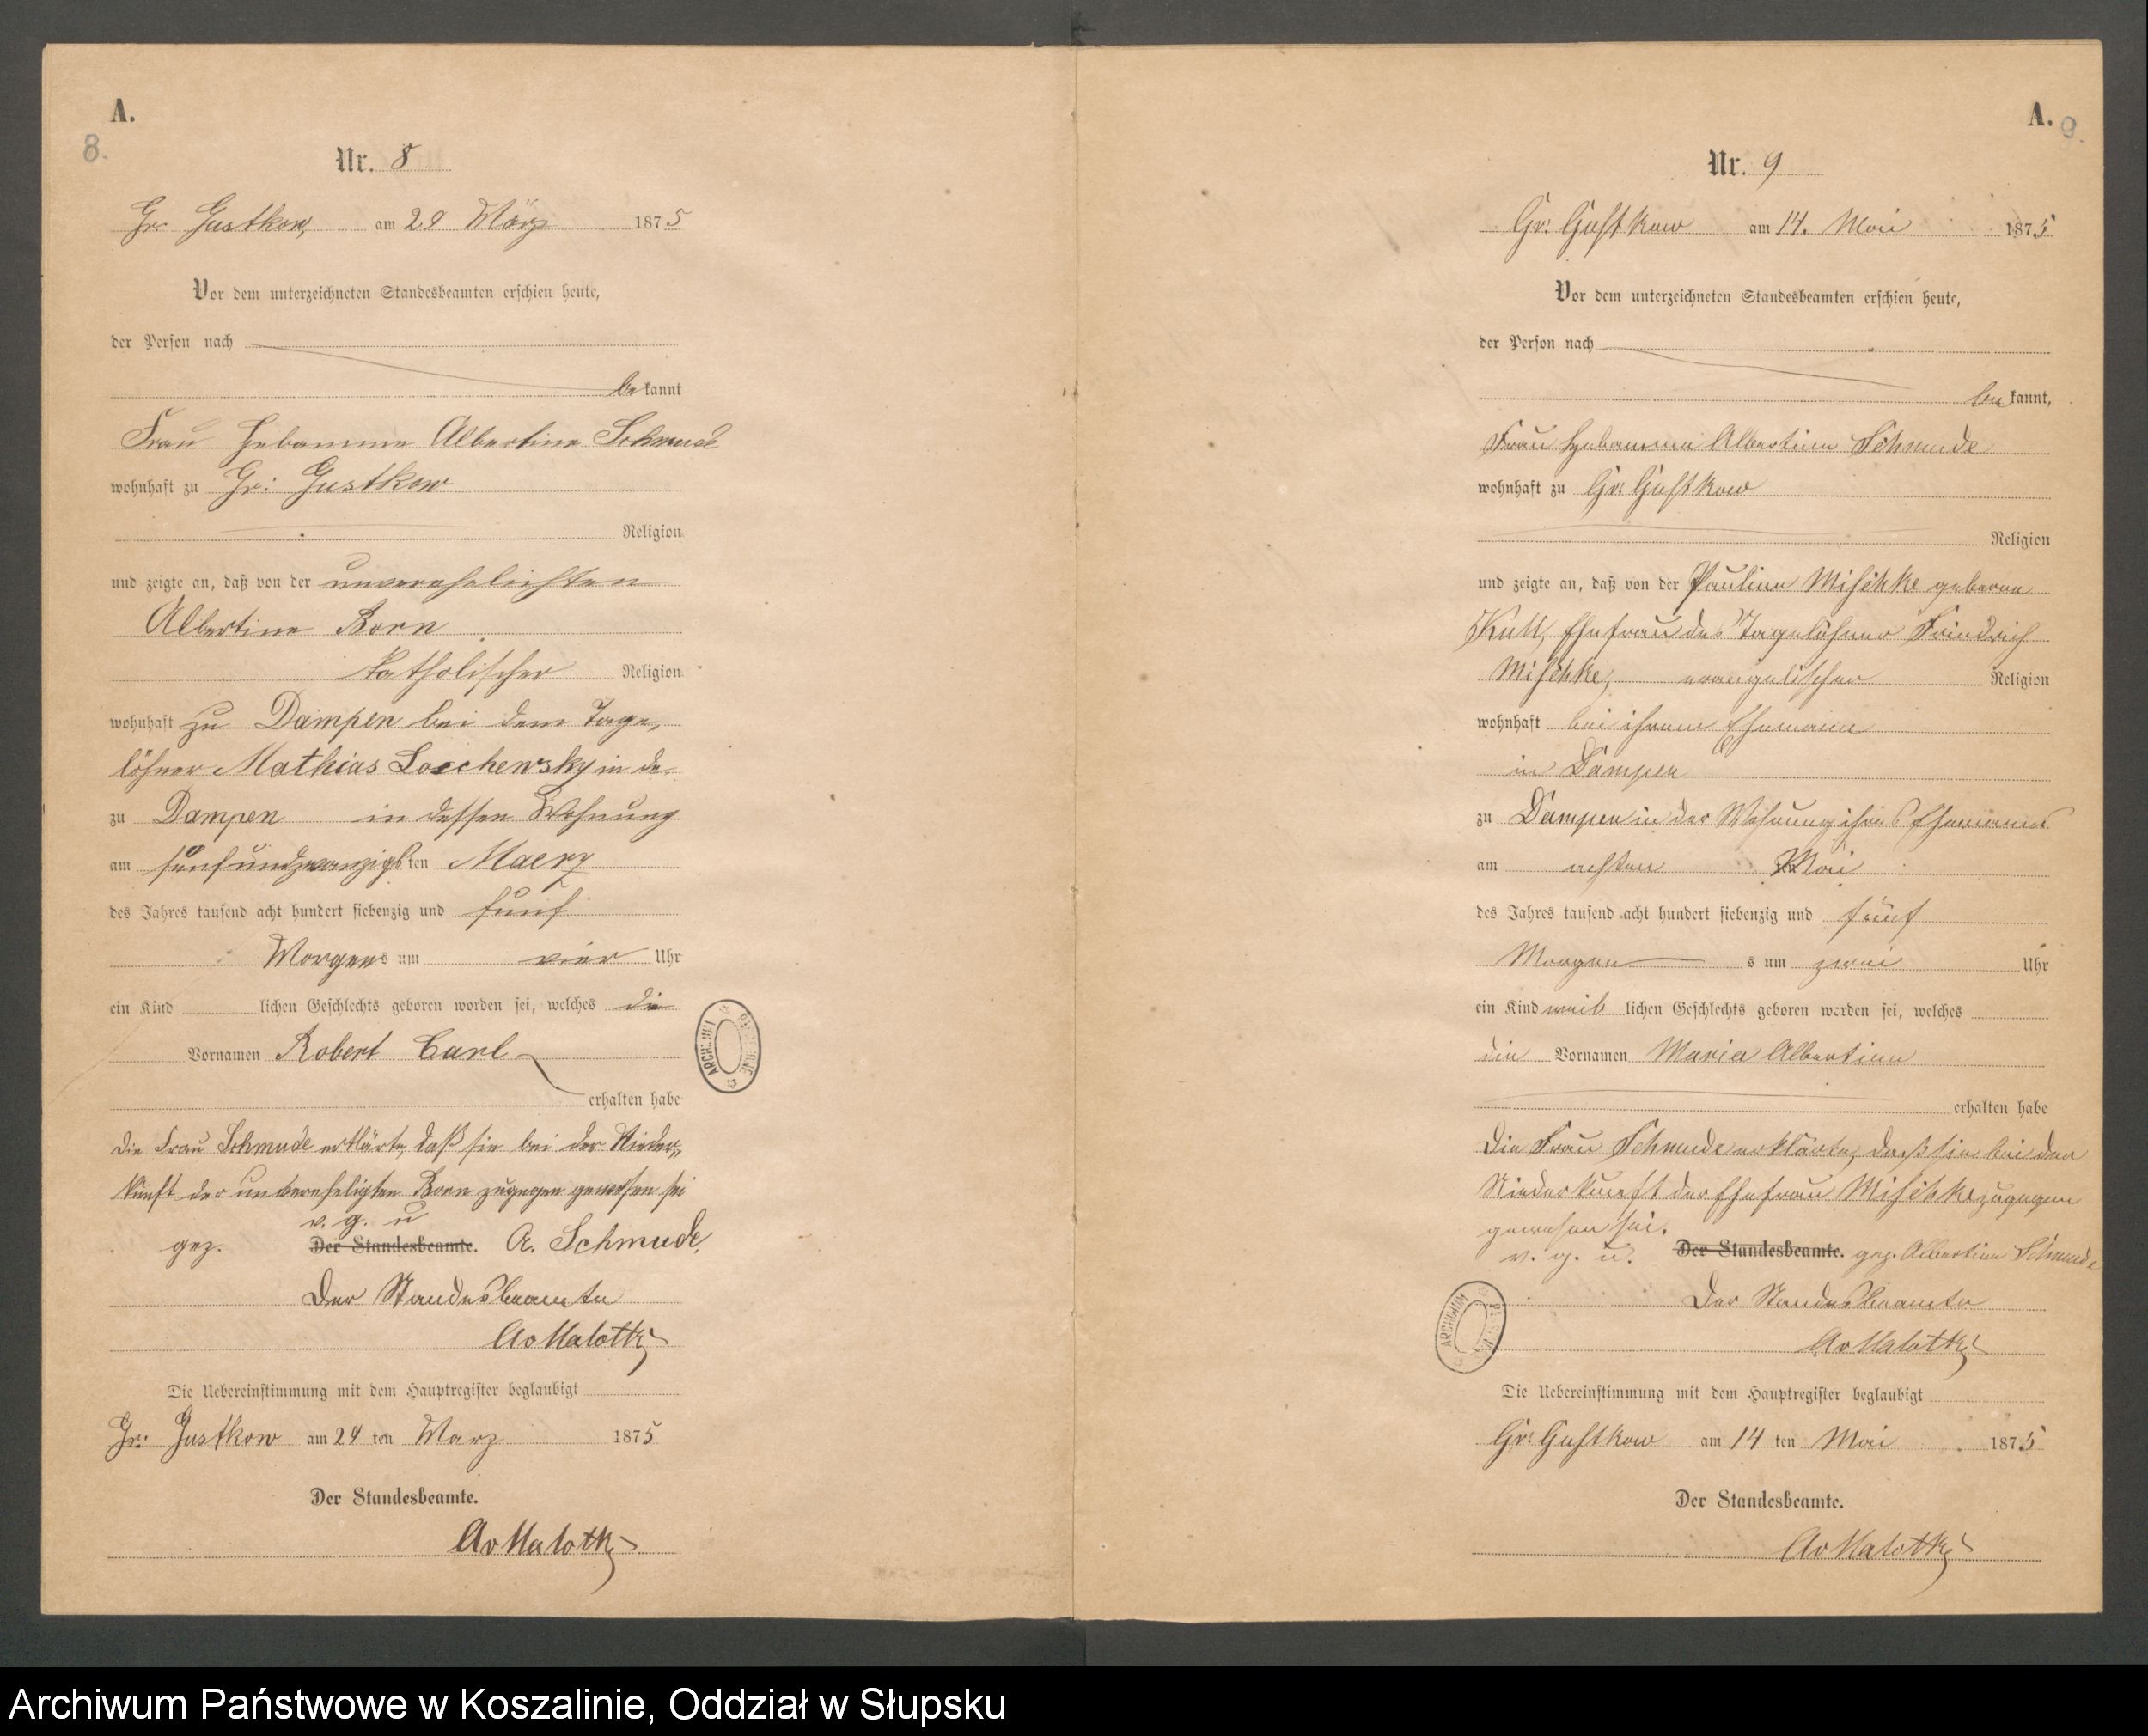 A.
8.
Nr. 8
Gr. Gustkow, am 29 März 1875
Vor dem unterzeichneten Standesbeamten erschien heute,
der Person nach
bekannt
Frau Hebamme Albertine Schmude
wohnhaft zu Gr: Gustkow
Religion
und zeigte an, daß von der unverehelichten
Albertine Born
katholischer Religion
wohnhaft zu Dampen bei dem Tage-
löhner Mathias in de-
zu Dampen in dessen Wohnung
am fünfundzwanzigsten Maerz
des Jahres tausend acht hundert siebenzig und fünf
Morgens um vier Uhr
ein Kind lichen Geschlechts geboren worden sei, welches die
Vornamen Robert Carl
erhalten habe
Die Frau Schmude erklärte, daß sie bei der Nieder-
kunft der unvereheligten Born zugegen gewesen sei
v. g. u
gez. Der Standesbeamte. A. Schmude,
Der Standesbeamte
AvMalottky
Die Uebereinstimmung mit dem Hauptregister beglaubigt
Gr: Gustkow am 29 ten Marz 1875
Der Standesbeamte.
AvMalottky
ARCHIWUM
A.
9.
Nr. 9
Gr: Gustkow am 14. Mai 1875
Vor dem unterzeichneten Standesbeamten erschien heute,
der Person nach
bekannt,
Frau Hebamme Albertine Schmude
wohnhaft zu Gr: Gustkow
Religion
und zeigte an, daß von der Pauline Mischke geborne
Kull, Ehefrau des Tagelöhner Friedrich
Mischke, evangelischer Religion
wohnhaft bei ihrem Ehemann
in Dampen
zu Dampen in der Wohnung ihres Ehemannes
am achten Mai
des Jahres tausend acht hundert siebenzig und fünf
Morgens um zwei Uhr
ein Kind weiblichen Geschlechts geboren worden sei, welches
die Vornamen Maria Albertine
erhalten habe
Die Frau Schmude erklärte, daß sie bei der
Niederkunft der Ehefrau Mischke zugegen
gewesen sei.
v. g. u. Der Standesbeamte. gez. Albertine Schmude
Der Standesbeamte
AvMalottky
ARCHIWUM
Die Uebereinstimmung mit dem Hauptregister beglaubigt
Gr: Gustkow am 14 ten Mai 1875
Der Standesbeamte.
AvMalottky
Archiwum Państwowe w Koszalinie, Oddział w Słupsku